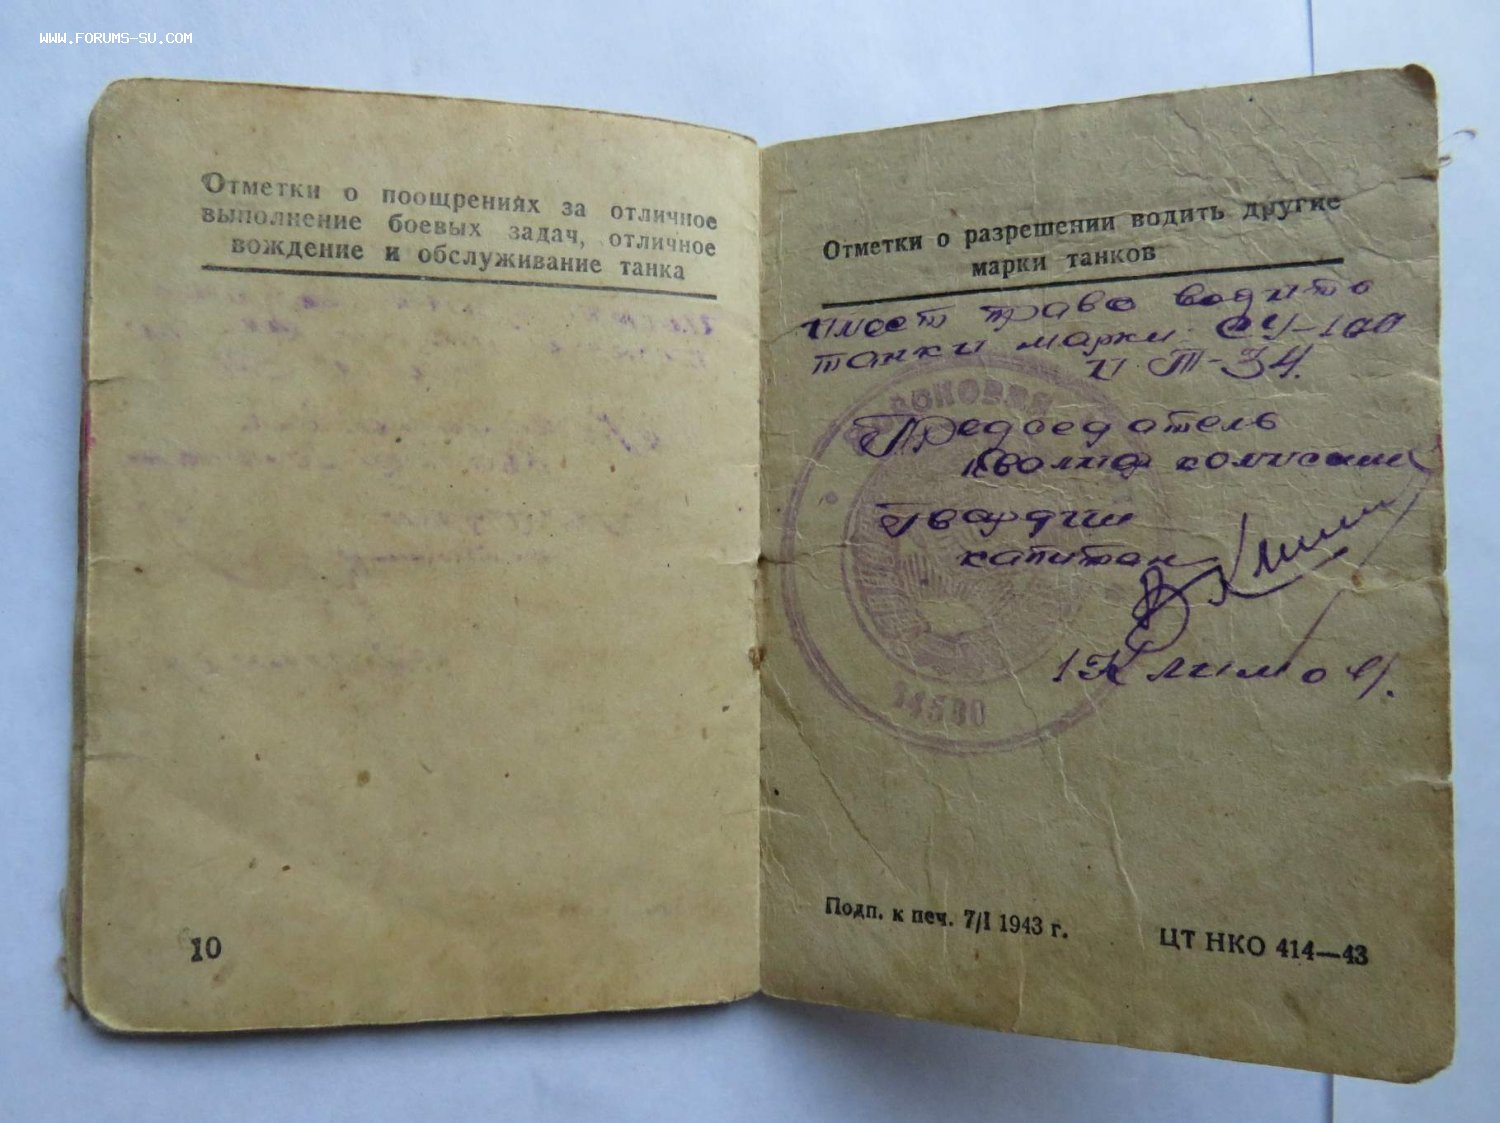 WWW.FORUMS-SU.COM
Отметки о поощрениях за отличное
выполнение боевых задач, отличное
вождение и обслуживание танка
10
Отметки о разрешении водить другие
марки танков
Имеет право водить
танки марки СУ-100
и Т-34.
Председатель
квалиф комиссии
Гвардии
капитан
/Климов/.
14580
Подп. к печ. 7/I 1943 г.
ЦТ НКО 414—43